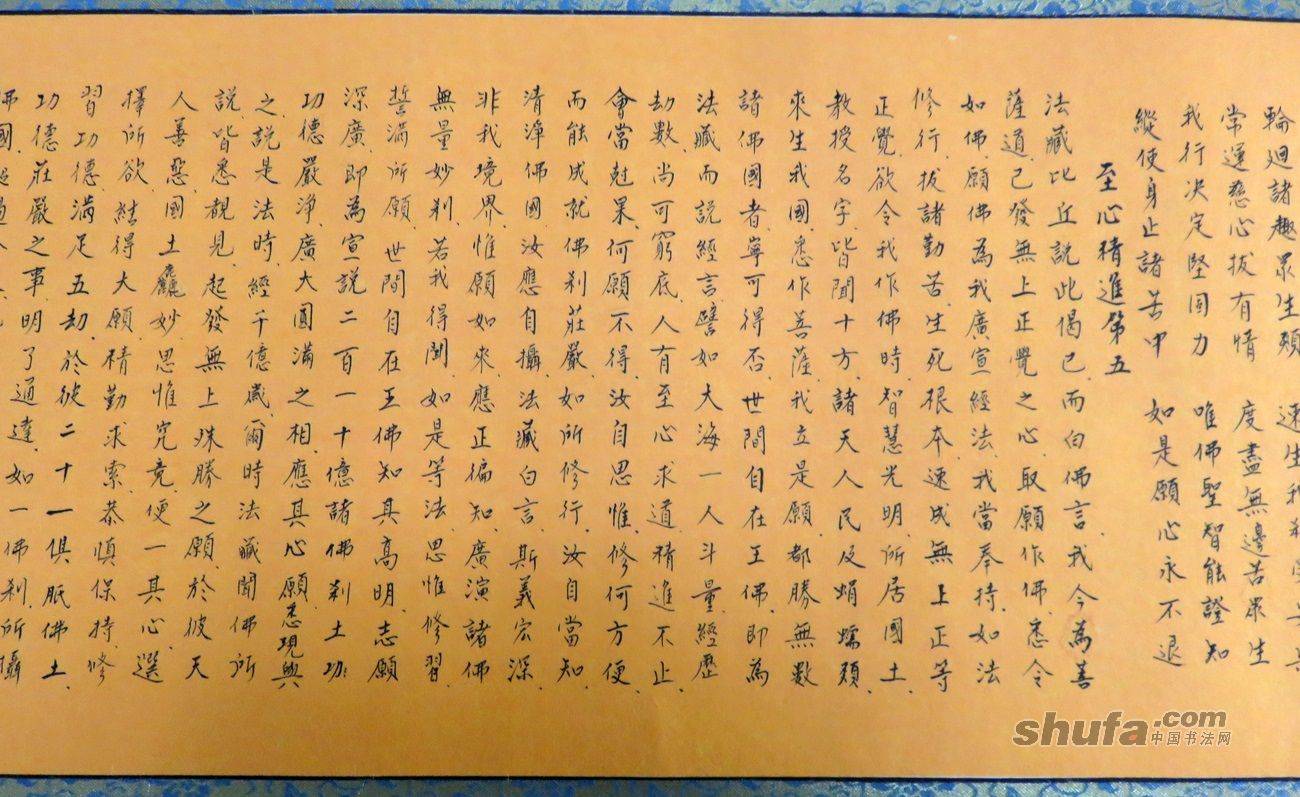 輪廻諸趣眾生類 速生我剎
常運慈心拔有情 度盡無邊苦眾生
我行決定堅固力 唯佛聖智能證知
縱使身止諸苦中 如是願心永不退
至心精進第五
法藏比丘說此偈已、而白佛言、我今為菩
薩道、已發無上正覺之心、取願作佛、悉令
如佛、願佛為我廣宣經法、我當奉持、如法
修行、拔諸勤苦、生死根本、速成無上正等
正覺、欲令我作佛時、智慧光明、所居國土、
教授名字、皆聞十方、諸天人民及蜎蠕類、
來生我國、悉作菩薩、我立是願、都勝無數
諸佛國者、寧可得否、世間自在王佛、即為
法藏而說經言、譬如大海一人斗量、經歷
劫數、尚可窮底、人有至心求道、精進不止、
會當尅果、何願不得、汝自思惟、修何方便、
而能成就佛剎莊嚴、如所修行、汝自當知、
清淨佛國、汝應自攝、法藏白言、斯義宏深、
非我境界、惟願如來、應正徧知、廣演諸佛
無量妙剎、若我得聞、如是等法、思惟修習、
誓滿所願、世間自在王佛知其高明、志願
深廣、即為宣說二百一十億諸佛剎土功
功德嚴淨、廣大圓滿之相、應其心願、悉現與
之、說是法時、經千億歲、爾時法藏聞佛所
說、皆悉覩見、起發無上殊勝之願、於彼天
人善惡、國土麤妙、思惟究竟、便一其心、選
擇所欲、結得大願、精勤求索、恭慎保持、修
習功德、滿足五劫、於彼二十一俱胝佛土、
功德莊嚴之事、明了通達、如一佛剎、所攝
佛國、
shufa.com
中国书法网